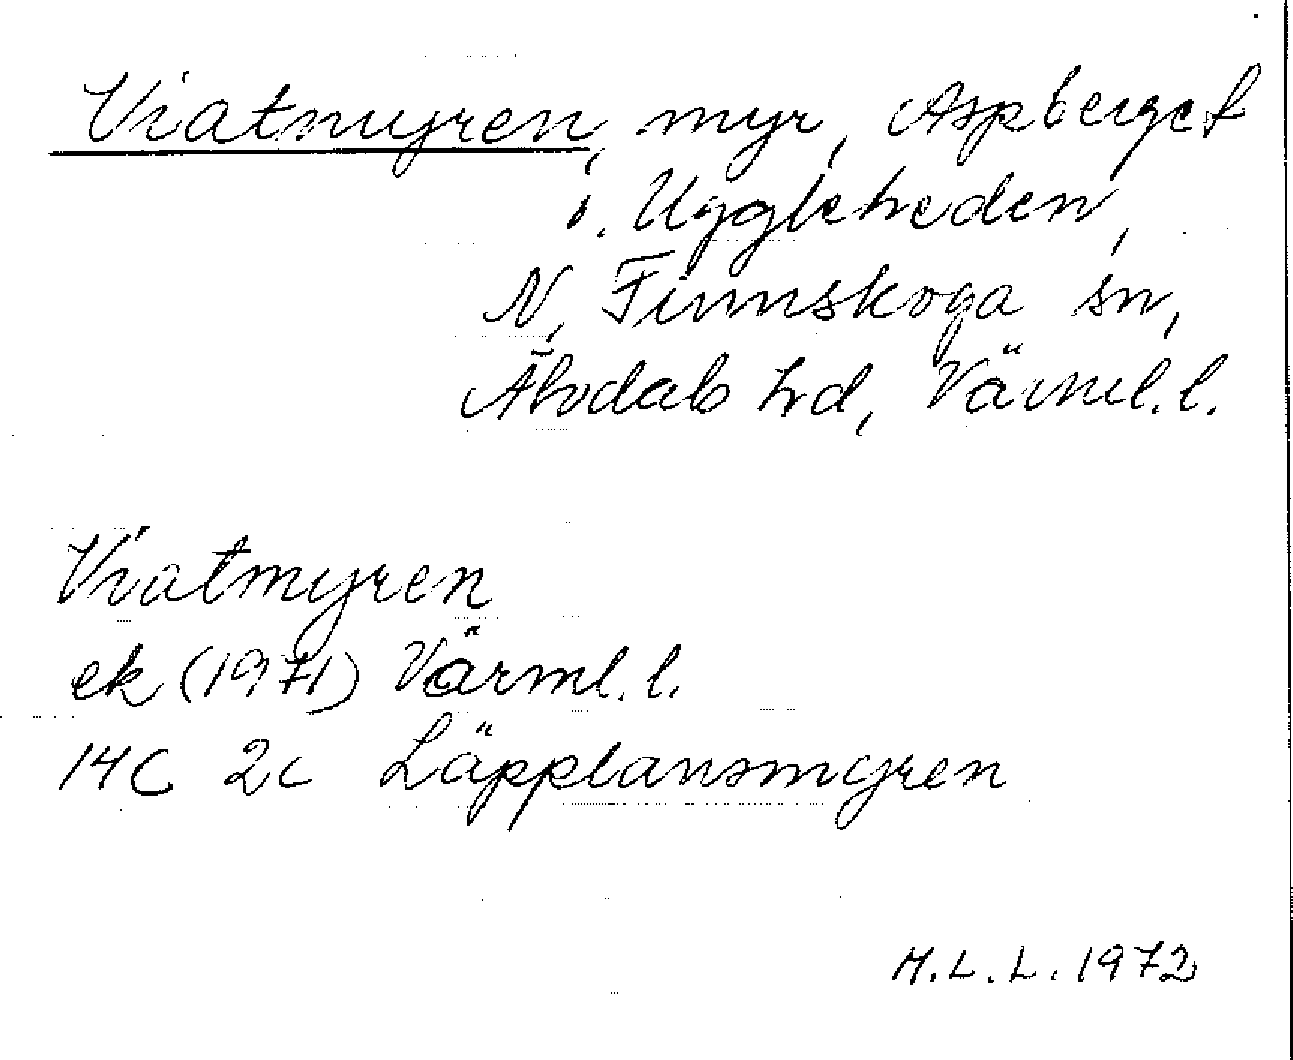 Viatmyren, myr, Aspberget
i. Uggleheden,
N, Finnskoga sn,
Älvdals hd, Värml. l.
Viatmyren
ek (1971) Värml. l.
14C 2c Läpplansmyren
M.L.L. 1972